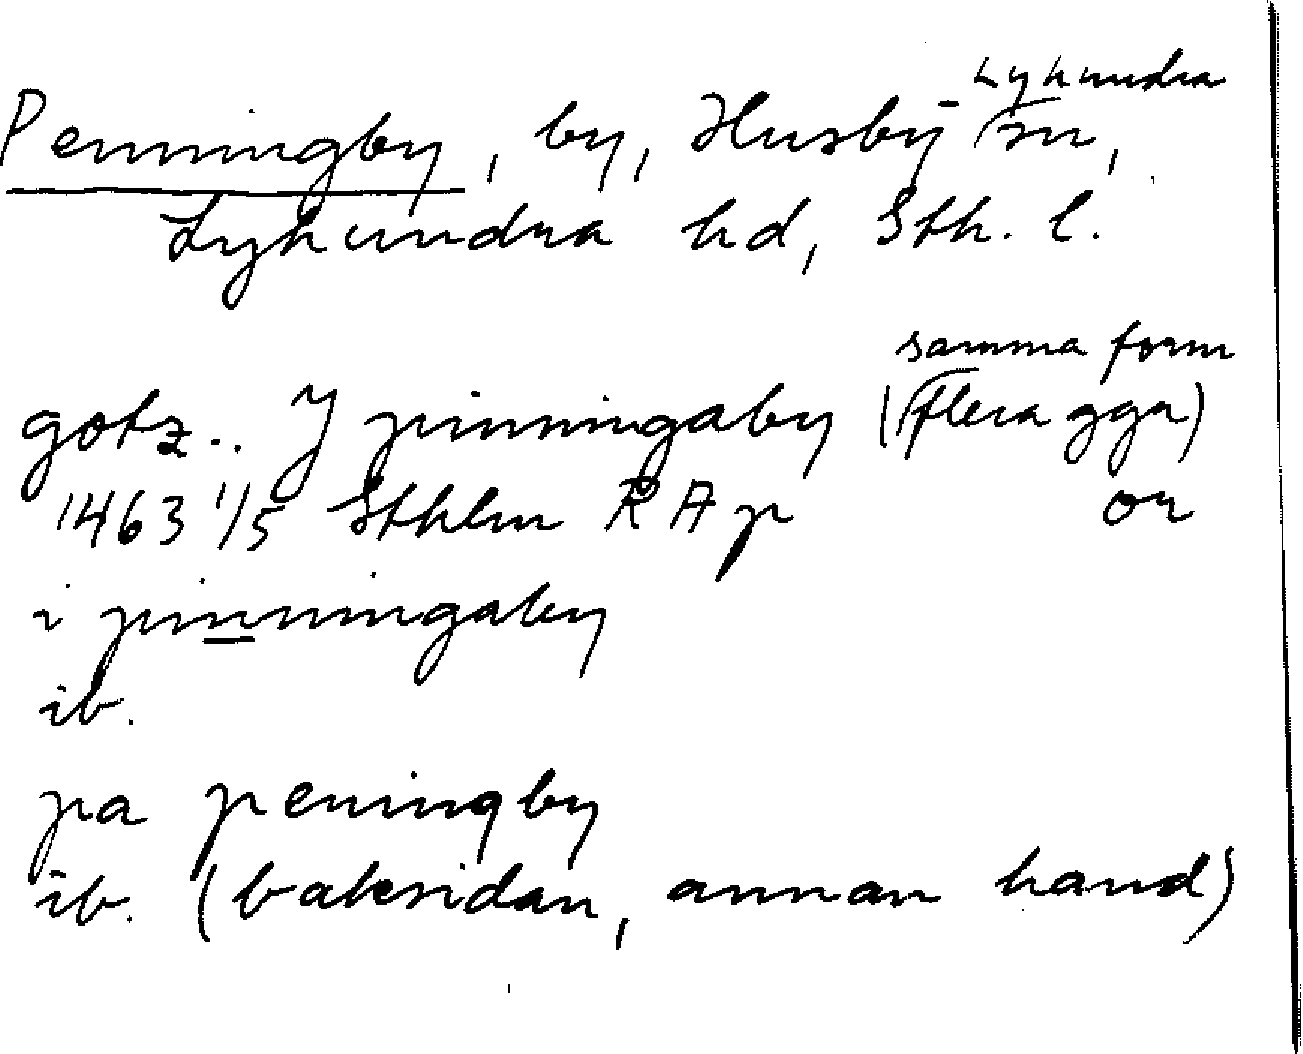 Penningby, by, Husby-Lyhundra sn,
Lyhundra hd, Sth. l.
gotz.. J pinningaby (samma form flera ggr)
1463 1/5 Sthlm RAp or
i pinningaby
ib.
pa peningby
ib. (baksidan, annan hand)